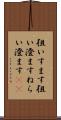 狙いすます狙
い澄ますねら
い澄ます